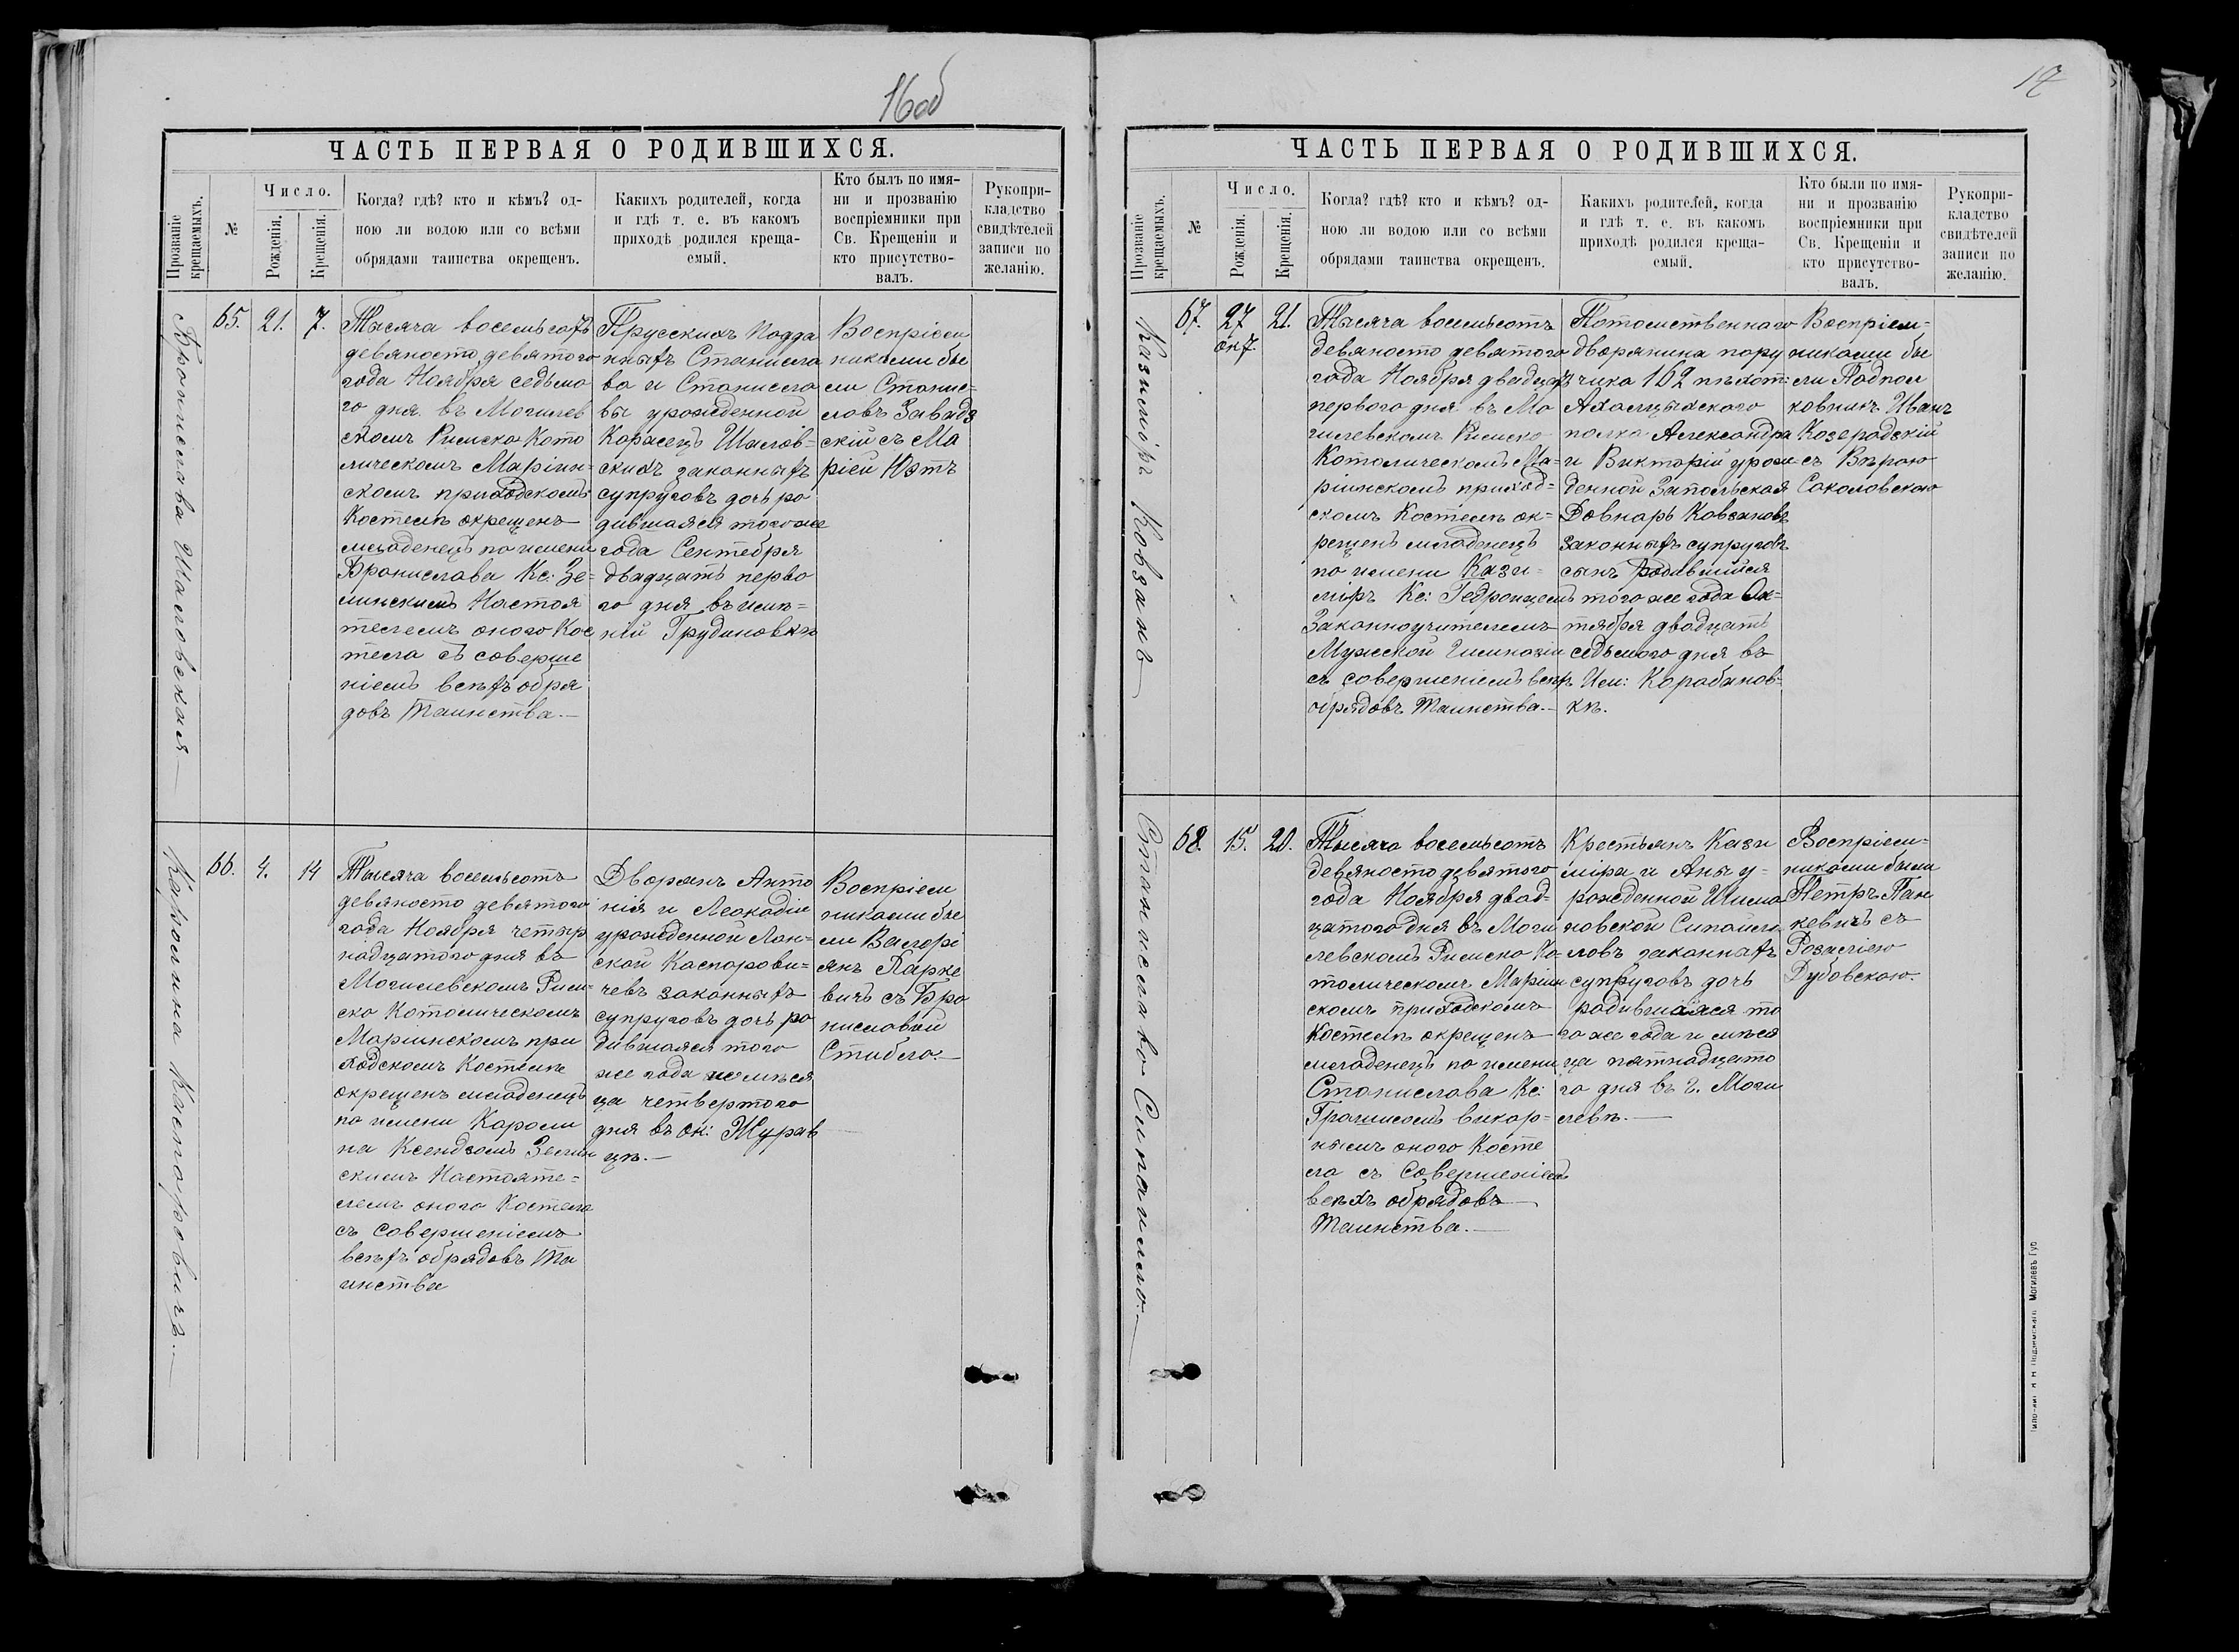 16об
ЧАСТЬ ПЕРВАЯ О РОДИВШИХСЯ.
Прозваніе крещаемыхъ.
№
Число.
Рожденія.
Крещенія.
Когда? гдѣ? кто и кѣмъ? од-
ною ли водою или со всѣми
обрядами таинства окрещенъ.
Какихъ родителей, когда
и гдѣ т. е. въ какомъ
приходѣ родился креща-
емый.
Кто былъ по имя-
ни и прозванію
воспріемники при
Св. Крещеніи и
кто присутство-
валъ.
Рукопри-
кладство
свидѣтелей
записи по
желанію.
Бронислава Шаловская
65.
21.
7.
Тысяча восемьсотъ
девяносто девятого
года Ноября седьмо
го дня въ Могилев
скомъ Римско Като
лическомъ Маріин-
скомъ приходскомъ
Костелѣ окрещенъ
младенецъ по имени
Бронислава Кс: Зе-
линскимъ Настоя
телемъ оного Кос
тела съ соверше
ніемъ всѣхъ обря
довъ Таинства.—
Прусскихъ подда
нныхъ Станисла
ва и Станисла
вы урожденной
Шалов-
скихъ законныхъ
супруговъ дочь ро
дившаяся того же
года Сентебря
двадцать перво
го дня въ имѣ-
ній Грудиновкѣ
Воспріем
никами бы
ли Станис-
лавъ Завадз
скій съ Ма
ріей Ютъ
Каролина Каспаровичъ.—
66.
4.
14
Тысяча восемьсотъ
девяносто девятого
года Ноября четыр
надцатого дня въ
Могилевскомъ Рим-
ско Католическомъ
Маріинскомъ при
ходскомъ Костелѣ
окрещенъ младенецъ
по имени Кароли
на Ксендзомъ Зелин
скимъ Настояте-
лемъ оного Костела
съ совершеніемъ
всѣхъ обрядовъ Та
инства
Дворянъ Анто
нія и Леокадіи
урожденной Лан-
ской Каспорови-
чевъ законныхъ
супруговъ дочь ро
дившаяся того
же года и мѣся
ца четвертого
дня въ ок: Журав
цѣ.—
Воспріем
никами бы
ли Валері
янъ Парке
вичъ съ Бро
нисловой
Стабло.—
17
ЧАСТЬ ПЕРВАЯ О РОДИВШИХСЯ.
Прозваніе крещаемыхъ.
№
Число.
Рожденія.
Крещенія.
Когда? гдѣ? кто и кѣмъ? од-
ною ли водою или со всѣми
обрядами таинства окрещенъ.
Какихъ родителей, когда
и гдѣ т. е. въ какомъ
приходѣ родился креща-
емый.
Кто были по имя-
ни и прозванію
воспріемники при
Св. Крещеніи и
кто присутство-
валъ.
Рукопри-
кладство
свидѣтелей
записи по
желанію.
Казиміръ Ковзанъ
67.
27
21.
Тысяча восемьсотъ
девяносто девятого
года Ноября двадцать
первого дня въ Мо
гилевскомъ Римско
Католическомъ Ма-
ріинскомъ приход-
скомъ Костелѣ ок-
рещенъ младенецъ
по имени Кази-
міръ Кс: Гедройцемъ
Законоучителемъ
Мужской Гимназіи
съ совершеніемъ всѣхъ
обрядовъ Таинства.—
Потомственнаго
дворянина пору
чика 162 пѣхот:
Ахалцыхского
полка Александра
и Викторіи урож
денной Запольская
Довнаръ Ковзановъ
законныхъ супруговъ
сынъ родившійся
того же года Ок-
тября двадцать
седьмого дня въ
Им: Карабанов-
кѣ.
Воспріем-
никами бы
ли Подпол
ковникъ Иванъ
Козерадскій
съ Вѣрою
Соколовскою
Станислава Сипайло.—
68.
15.
20.
Тысяча восемьсотъ
девяносто девятого
года Ноября двад-
цатого дня въ Моги
левскомъ Римско Ка-
толическомъ Маріин
скомъ приходскомъ
Костелѣ окрещенъ
младенецъ по имени
Станислава Кс:
викар-
нымъ оного Косте
ла съ Совершеніемъ
всѣхъ обрядовъ
Таинства.—
Крестьянъ Кази
міра и Анны у-
рожденной Шима
новской Сипайло
ловъ законныхъ
супруговъ дочь
родившаяся то
го же года и мѣся
ца пятнадцато
го дня въ г. Моги
левѣ.—
Воспріем-
никами были
Петръ Пан
кевичъ съ
Розаліею
Дубовскою.